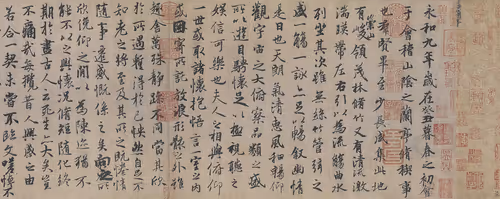 永和九年歲在癸丑暮春之初會
于會稽山陰之蘭亭脩稧事
也羣賢畢至少長咸集此地
有崇山峻領茂林脩竹又有清流激
湍暎帶左右引以為流觴曲水
列坐其次雖無絲竹管弦之
盛一觴一詠亦足以暢敘幽情
是日也天朗氣清惠風和暢仰
觀宇宙之大俯察品類之盛
所以遊目騁懷足以極視聽之
娛信可樂也夫人之相與俯仰
一世或取諸懷抱悟言一室之內
或因寄所託放浪形骸之外雖
趣舍萬殊靜躁不同當其欣
於所遇暫得於己怏然自足不
知老之將至及其所之既惓情
隨事遷感慨係之矣向之所
欣俛仰之間以為陳迹猶不
能不以之興懷況脩短隨化終
期於盡古人云死生亦大矣豈
不痛哉每攬昔人興感之由
若合一契未嘗不臨文嗟悼不